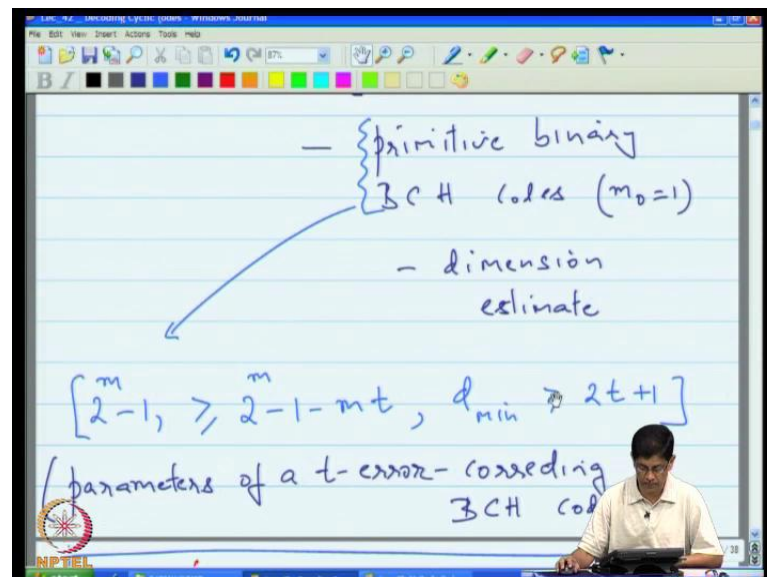 Lec_42_Decoding Cyclic Codes - Windows Journal
File Edit View Insert Actions Tools Help
87%
B I
— primitive binary
BCH codes (m₀=1)
- dimension
estimate
[2^m-1, ≥ 2^m-1-mt, d_min ≥ 2t+1]
parameters of a t-error-correcting
BCH cod
/ 38
NPTEL